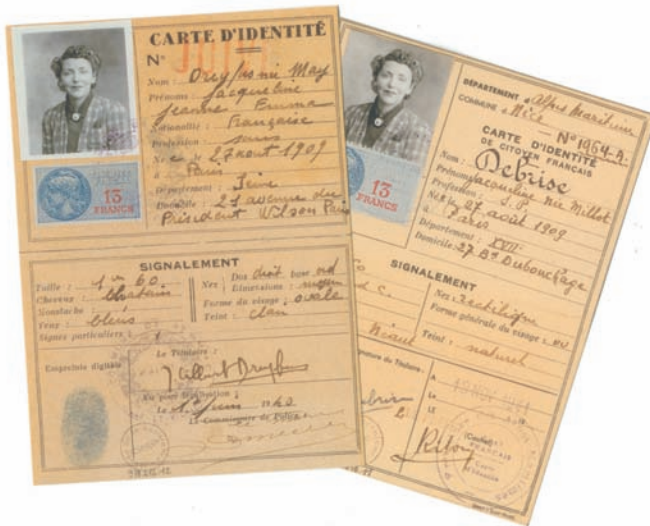 CARTE D'IDENTITÉ
N°
JUIVE
Nom : Dreyfus née May
Prénoms : Jacqueline
Jeanne Emma
Nationalité : Française
Profession : sans
Né e le 27 août 1909
à Paris
Département : Seine
Domicile : 21 avenue du
Président Wilson Paris
13
FRANCS
SIGNALEMENT
Taille : 1m 60
Cheveux : Chatain
Moustache :
Yeux : bleus
Signes particuliers :
Nez : Dos droit base
Dimensions : moyen
Forme du visage : ovale
Teint : clair
Empreinte digitale
Le Titulaire :
Dreyfus
Le juin 1940
Le Commissaire de Police
DÉPARTEMENT d Alpes Maritimes
COMMUNE d Nice
N° 1964-A.
CARTE D'IDENTITÉ
DE CITOYEN FRANÇAIS
Nom : Debrise
Prénoms Jacqueline née Millot
Profession S. P.
Né e le 27 août 1909
à Paris
Département : XVII
Domicile : 27 Bd Dubouchage
13
FRANCS
SIGNALEMENT
Nez : rectiligne
Forme générale du visage :
Teint : naturel
Signature du Titulaire :
A
Le
LE
FRANÇAIS
Carte
d'Identité